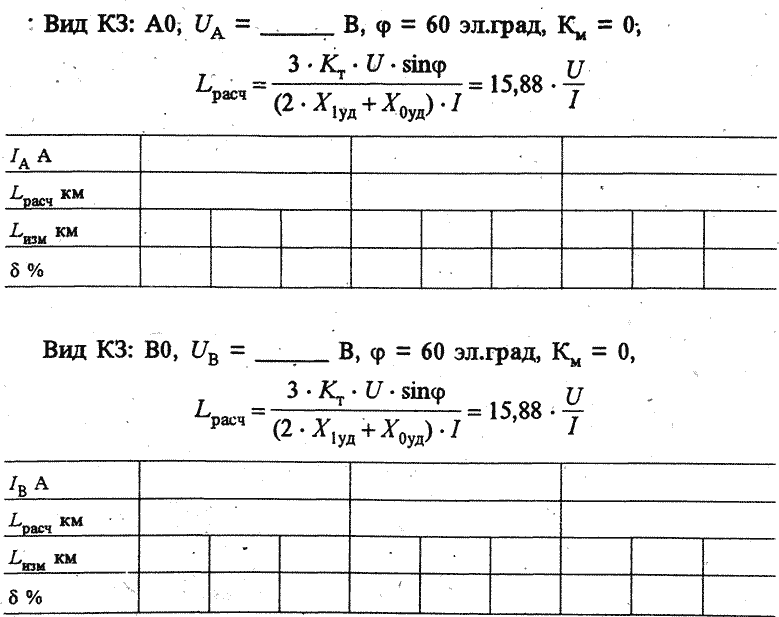 Вид КЗ: А0, U_A = ______ В, φ = 60 эл.град, К_м = 0;
L_расч = (3 · K_т · U · sinφ) / ((2 · X_1уд + X_0уд) · I) = 15,88 · U/I
I_A А
L_расч км
L_изм км
δ %
Вид КЗ: В0, U_B = ______ В, φ = 60 эл.град, К_м = 0,
L_расч = (3 · K_т · U · sinφ) / ((2 · X_1уд + X_0уд) · I) = 15,88 · U/I
I_B А
L_расч км
L_изм км
δ %